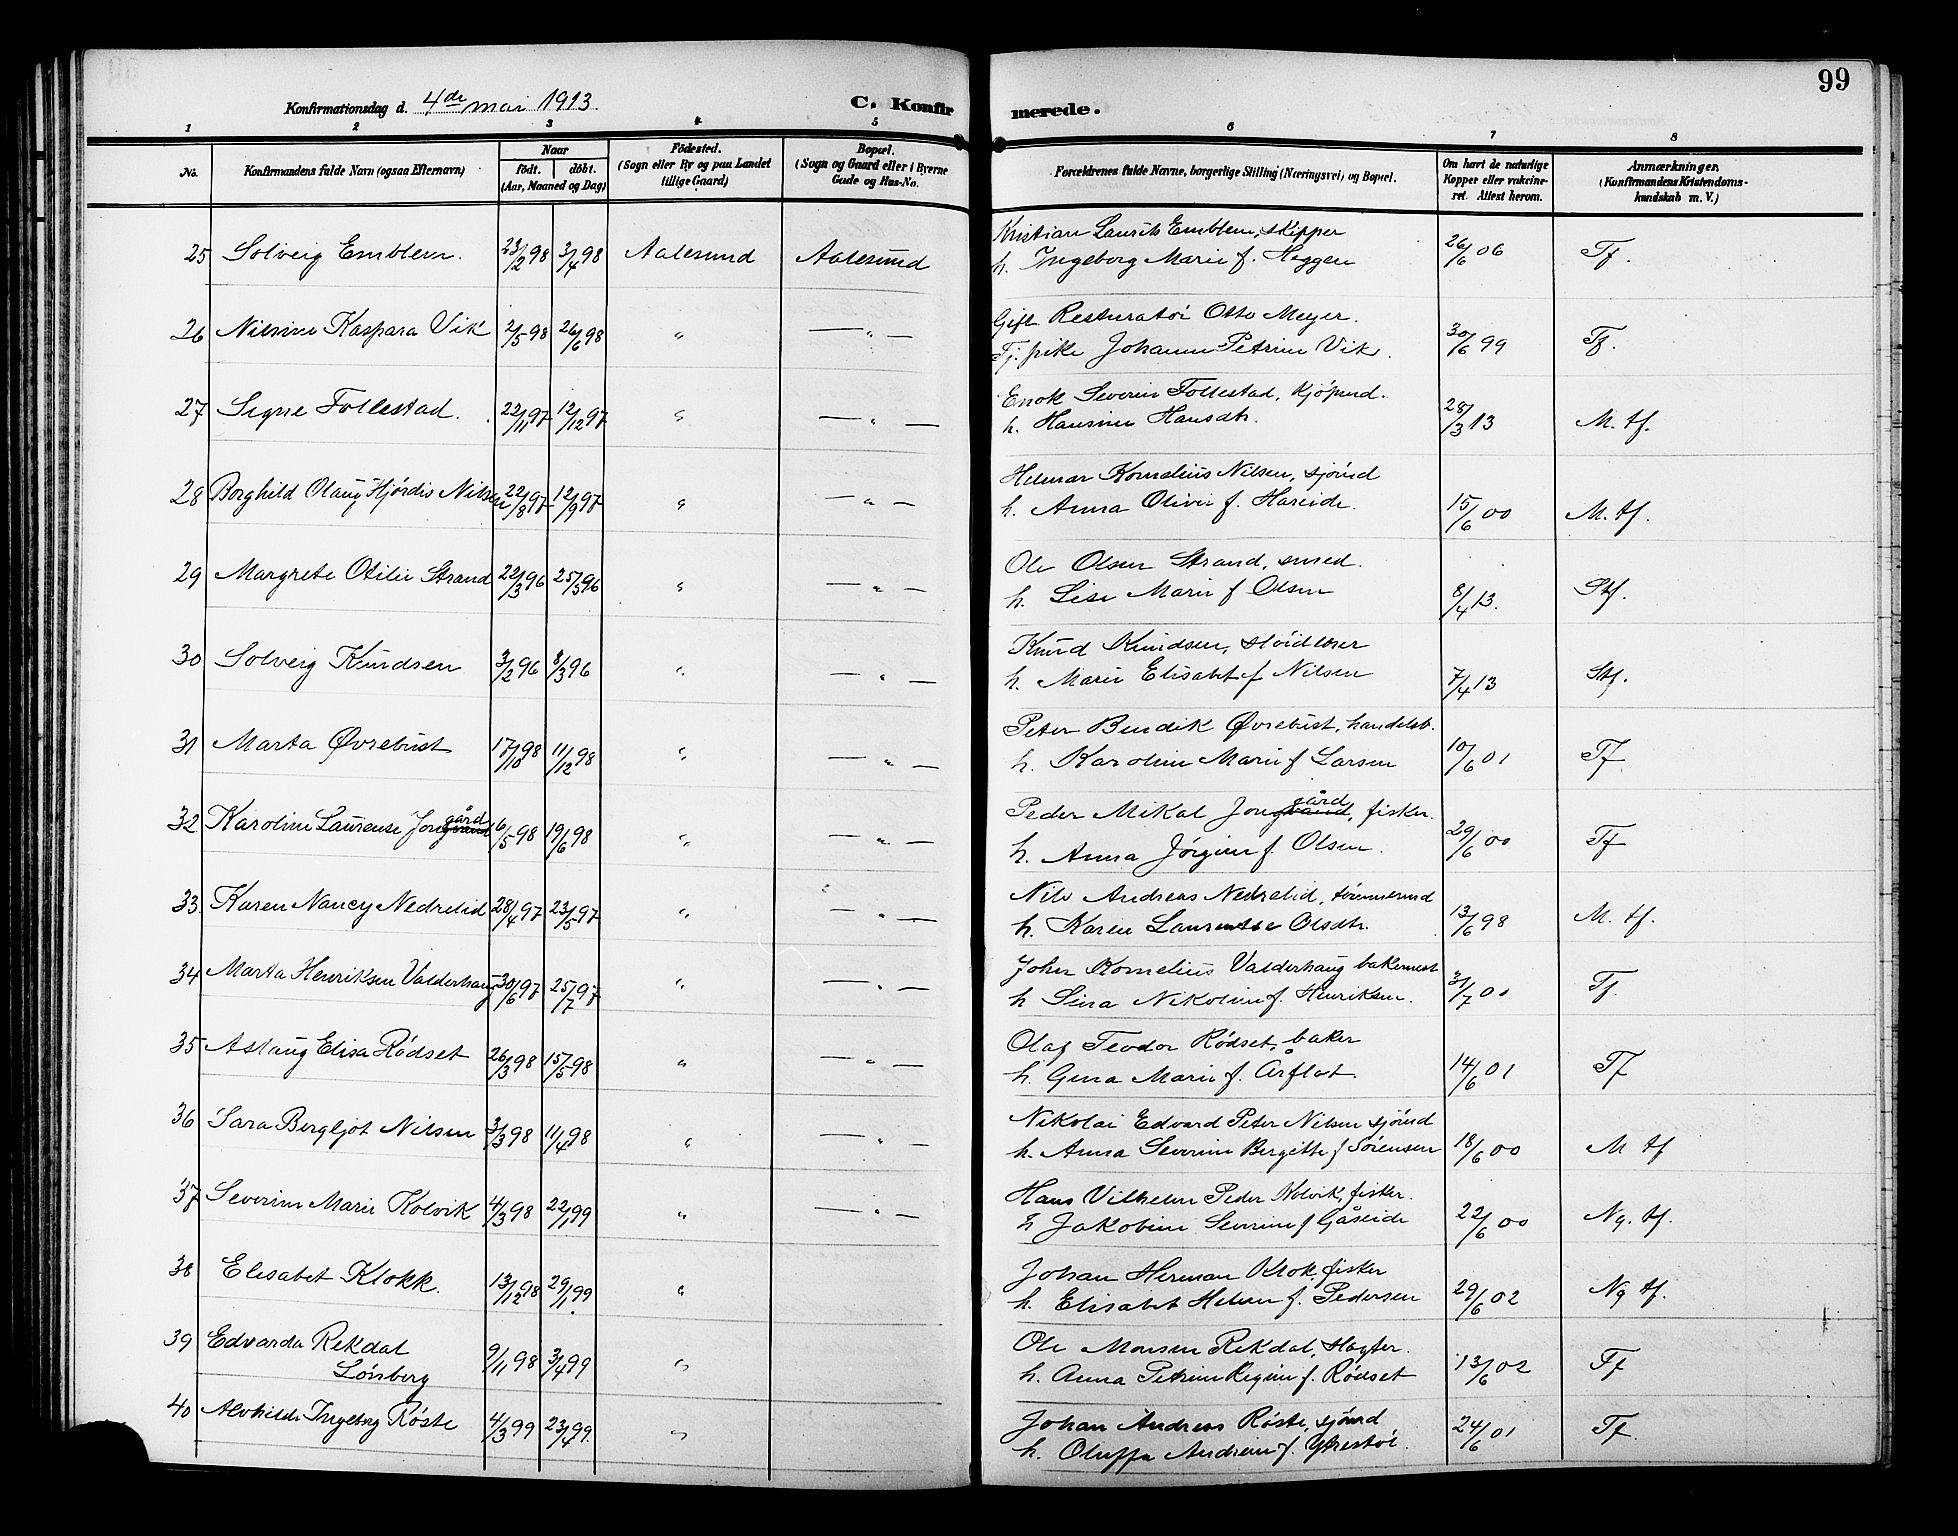 99
Konfirmationsdag d. 4de mai 1913. C. Konfirmerede.
1 2 3 4 5 6 7 8
No. Konfirmandens fulde Navn (ogsaa Efternavn) Naar födt. döbt. (Aar, Maaned og Dag) Födested. (Sogn eller By og paa Landet tillige Gaard) Bopæl. (Sogn og Gaard eller i Byerne Gade og Hus-No. Forældrenes fulde Navne, borgerlige Stilling (Næringsvei) og Bopæl. Om havt de naturlige Kopper eller vakcineret. Attest herom. Anmærkninger. (Konfirmandens Kristendomskundskab m. V.)
25 Solveig Emblem. 23/2 98 3/4 98 Aalesund Aalesund Kristian Laurits Emblem, skipper
h. Ingeborg Marie f. Heggen 26/6 06 Tf.
26 Nilsine Kaspara Vik 2/5 98 26/6 98 " — " — Gift Restauratör Otto Meyer.
Tj. pike Johanne Petrine Vik. 30/6 99 Tf.
27 Signe Follestad. 22/11 97 12/12 97 " — " — Enok Severin Follestad, kjøpmd.
h. Hansine Hansdtr. 28/3 13 M. tf.
28 Borghild Olaug Hjördis Nilsen 22/8 97 12/9 97 " — " — Helmar Kornelius Nilsen, sjömd
h. Anna Olivie f. Hareide. 15/6 00 M. tf.
29 Margrete Otilie Strand 22/3 96 25/5 96 " — " — Ole Olsen Strand, smed.
h. Lise Marie f Olsen 8/4 13. Stf.
30 Solveig Knudsen 3/2 96 8/3 96 " — " — Knud Knudsen, slöidlærer
h. Marie Elisabet f Nilsen 7/4 13 Stf.
31 Marta Øvrebust 17/10 98 11/12 98 " — " — Peter Bendik Øvrebust, handelsb.
h. Karoline Marie f Larsen 10/6 01 Tf
32 Karoline Laurense Jongård 6/5 98 19/6 98 " — " — Peder Mikal Jongård, fisker.
h. Anna Jørgine f. Olsen. 29/6 00 Tf
33. Karen Nancy Nedrelid 28/4 97 23/5 97 " — " — Nils Andreas Nedrelid, tömmermd
h. Karen Laurentse Olsdtr. 13/6 98 M. tf.
34 Marta Henriksen Valderhaug 30/6 97 25/7 97 " — " — John Kornelius Valderhaug bakermest
h Sina Nikoline f. Henriksen. 31/7 00 Tf.
35 Aslaug Elisa Rödset 26/3 98 15/5 98 " — " — Olaf Teodor Rödset, baker
h. Gina Marie f. Årflot. 14/6 01 Tf
36 Sara Bergljot Nilsen 3/3 98 11/4 98 " — " — Nikolai Edvard Peter Nilsen sjömd
h. Anna Severine Bergitte f Sörensen 18/6 00 M tf
37 Severine Marie Kolvik 4/3 98 22/1 99 " — " — Hans Vilhelm Peder Kolvik, fisker.
h Jakobine Severine f Gåseide 22/6 00 Ng. tf.
38 Elisabet Klokk. 13/12 98 29/1 99 " Johan Herman Klok, fisker
h. Elisabet Helene f. Pedersen 29/6 02 Ng tf.
39 Edvarda Rekdal
Lönberg 9/11 98 3/4 99 " Ole Monsen Rekdal,
h. Anna Petrine Regine f. Rödset 13/6 02 Tf
40 Alvhilde Ingeborg Röste 4/3 99 23/4 99. " Johan Andreas Röste, sjömd
h. Oluffa Andrine f. Ytrestöl. 24/6 01 Tf.